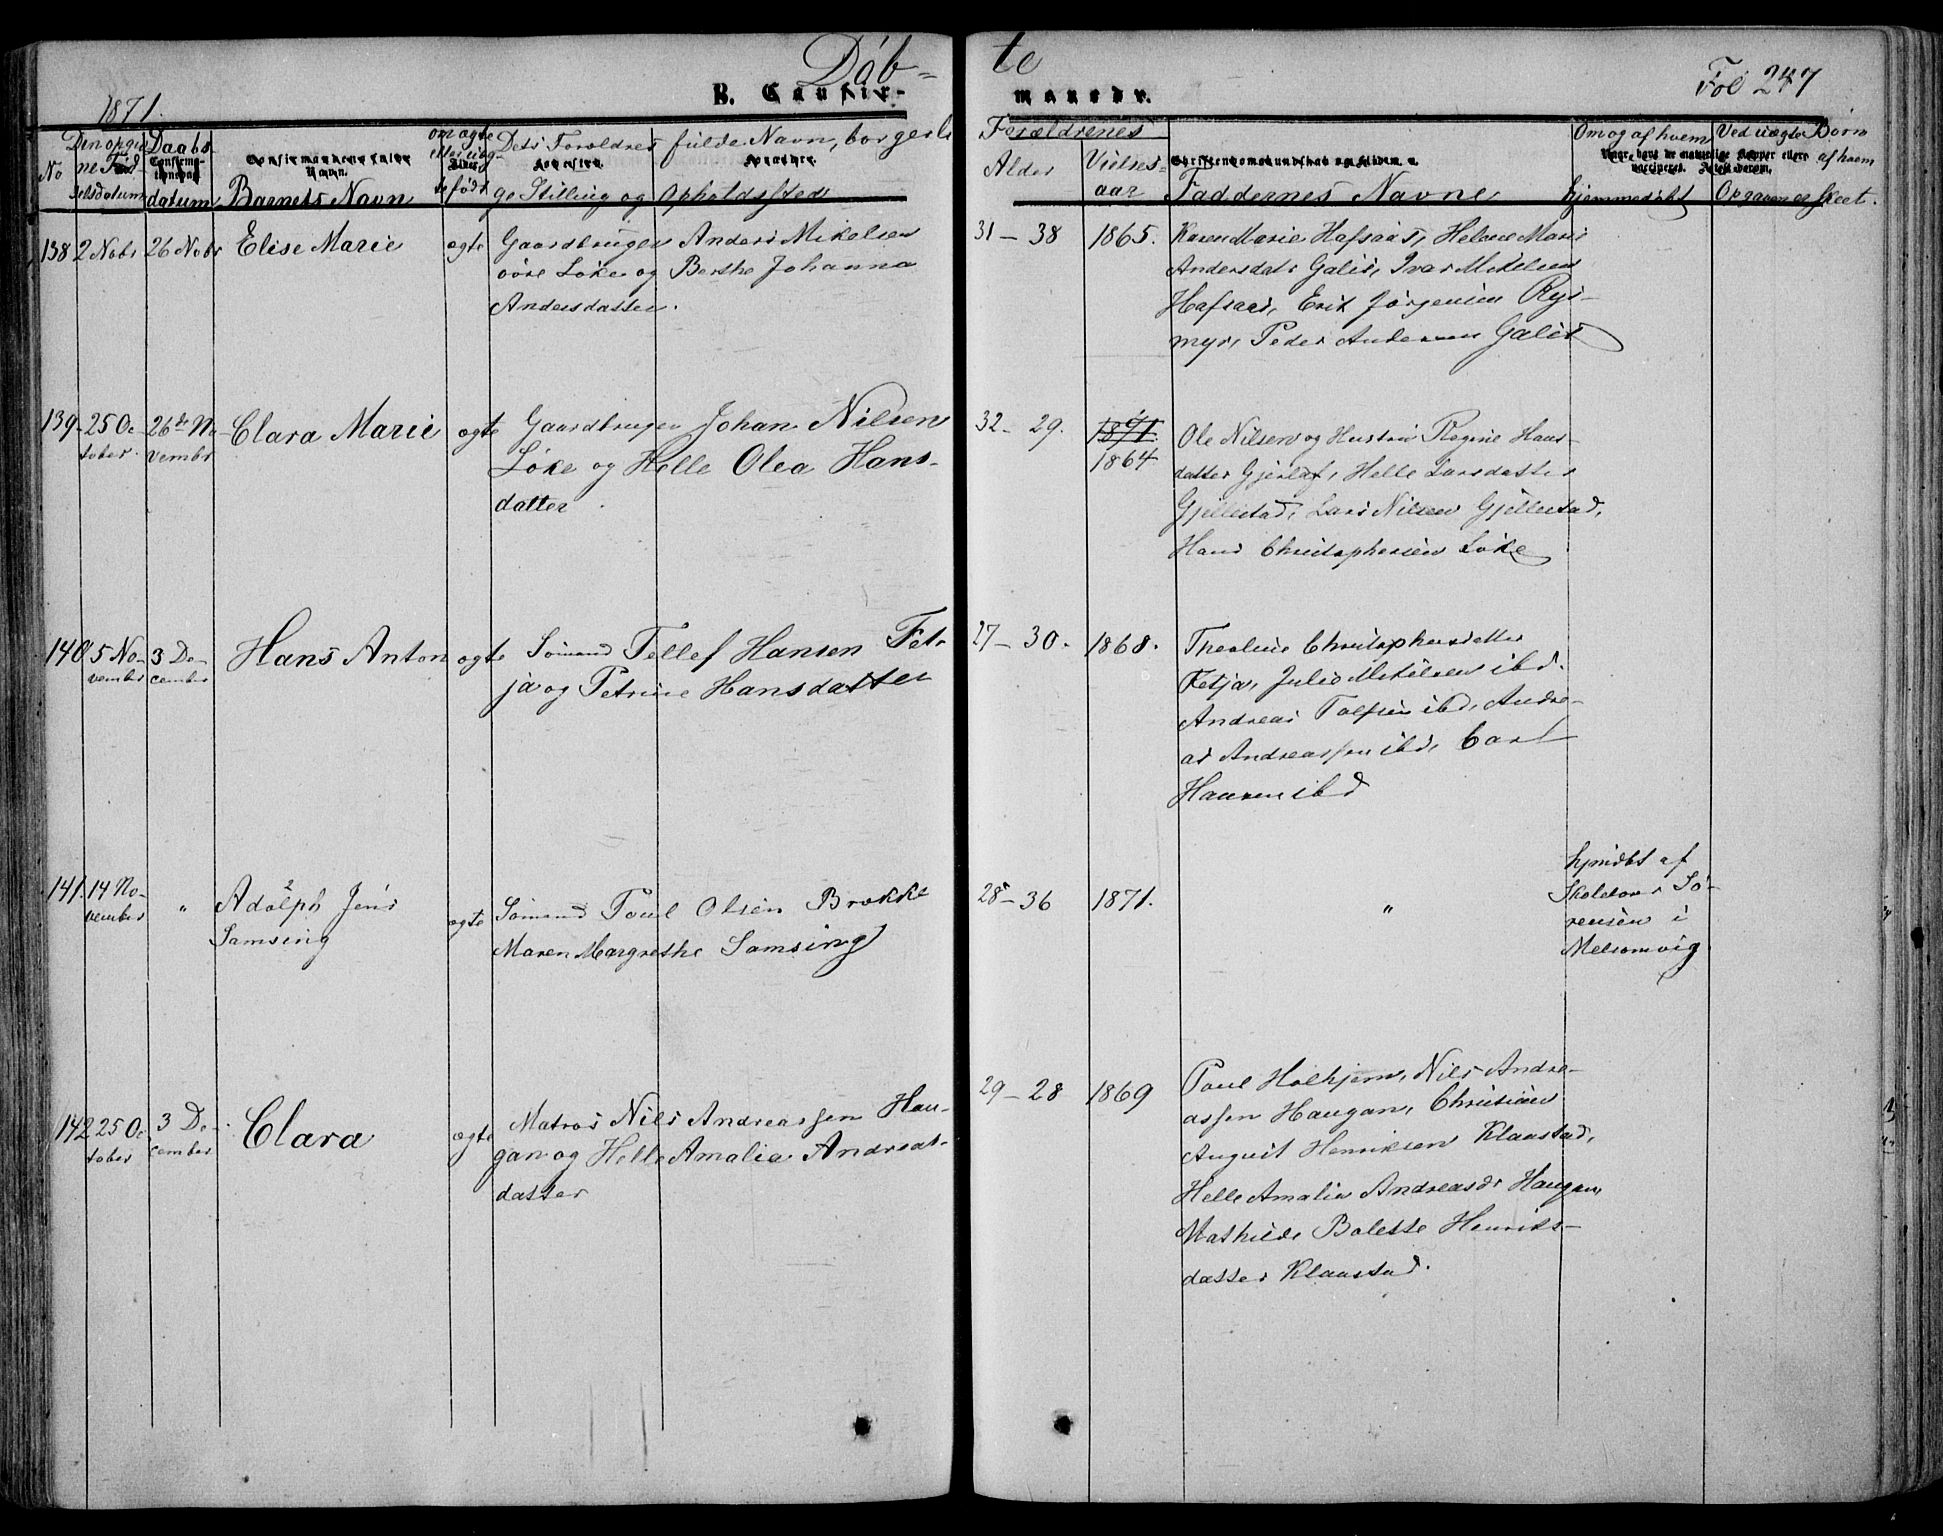 Döb-
te
Fol 247
1871.
B. Confir-
mander.
No
Den opgiv
ne Fød
selsdatum
Daabs
datum
Confirmandernes fulde
Navn.
Barnets Navn
om ægte
eller uæg
te født
Dets Forældres fulde Navn, borgerli
ge Stilling og Opholdssted
Forældrenes
Alder
Vielses-
aar
Christendomskundskab og Flid m. v.
Faddernes Navne
Om og af hvem
hjemmedøbt
Ved uægte Børn
af hvem
Opgaven er skeet.
138 2 Nobr 26 Nobr Elise Marie ægte Gaardbruger Anders Mikelsen
øvre Løke og Berthe Johanna
Andersdatter.
31 - 38 1865. Karen Marie Hafsaas, Helene Marie
Andersdatr Galis, Ivar Mikelsen
Hafsaas, Erik Jörgensen Rys-
myr, Peder Andersen Galis
139. 25 Oc- 26de No- Clara Marie ægte Gaardbruger Johan Nilsen
tober. vembr
Løke og Helle Olea Hans-
datter.
32 - 29. 1871. Ole Nilsen og Hustru Regine Hans-
1864 datter Gjerla, Helle Larsdatter
Gjellestad, Lars Nilsen Gjellestad,
Hans Christophersen Løke
140 5 No- 3 De- Hans Anton ægte Sømand Tellef Hansen Fet-
vember cember
ja og Petrine Hansdatter
27 - 30. 1868. Theoline Christophersdatter
Fetja, Julie Mikelsen ibd.
Andreas Tolfsen ibd, Andre-
as Andreassen ibd, Carl
Hansen ibd
141. 14 No- " Adolph Jens ægte Sømand Poul Olsen Brekke
vember Samsing
Maren Margrethe Samsing
28 - 36 1871. "
hjmdbt af
Skolelærer Sö-
rensen i
Melsomvig
142 25 Oc 3 De- Clara ægte Matros Nils Andreassen Hau-
tober cember
gan og Helle Amalie Andreas-
datter
29 - 28 1869 Poul Holhjem, Nils Andre-
assen Haugan, Christian
August Henriksen Klaastad,
Helle Amalie Andreasdr Haugan,
Mathilde Bolette Henriks-
datter Klaastad.